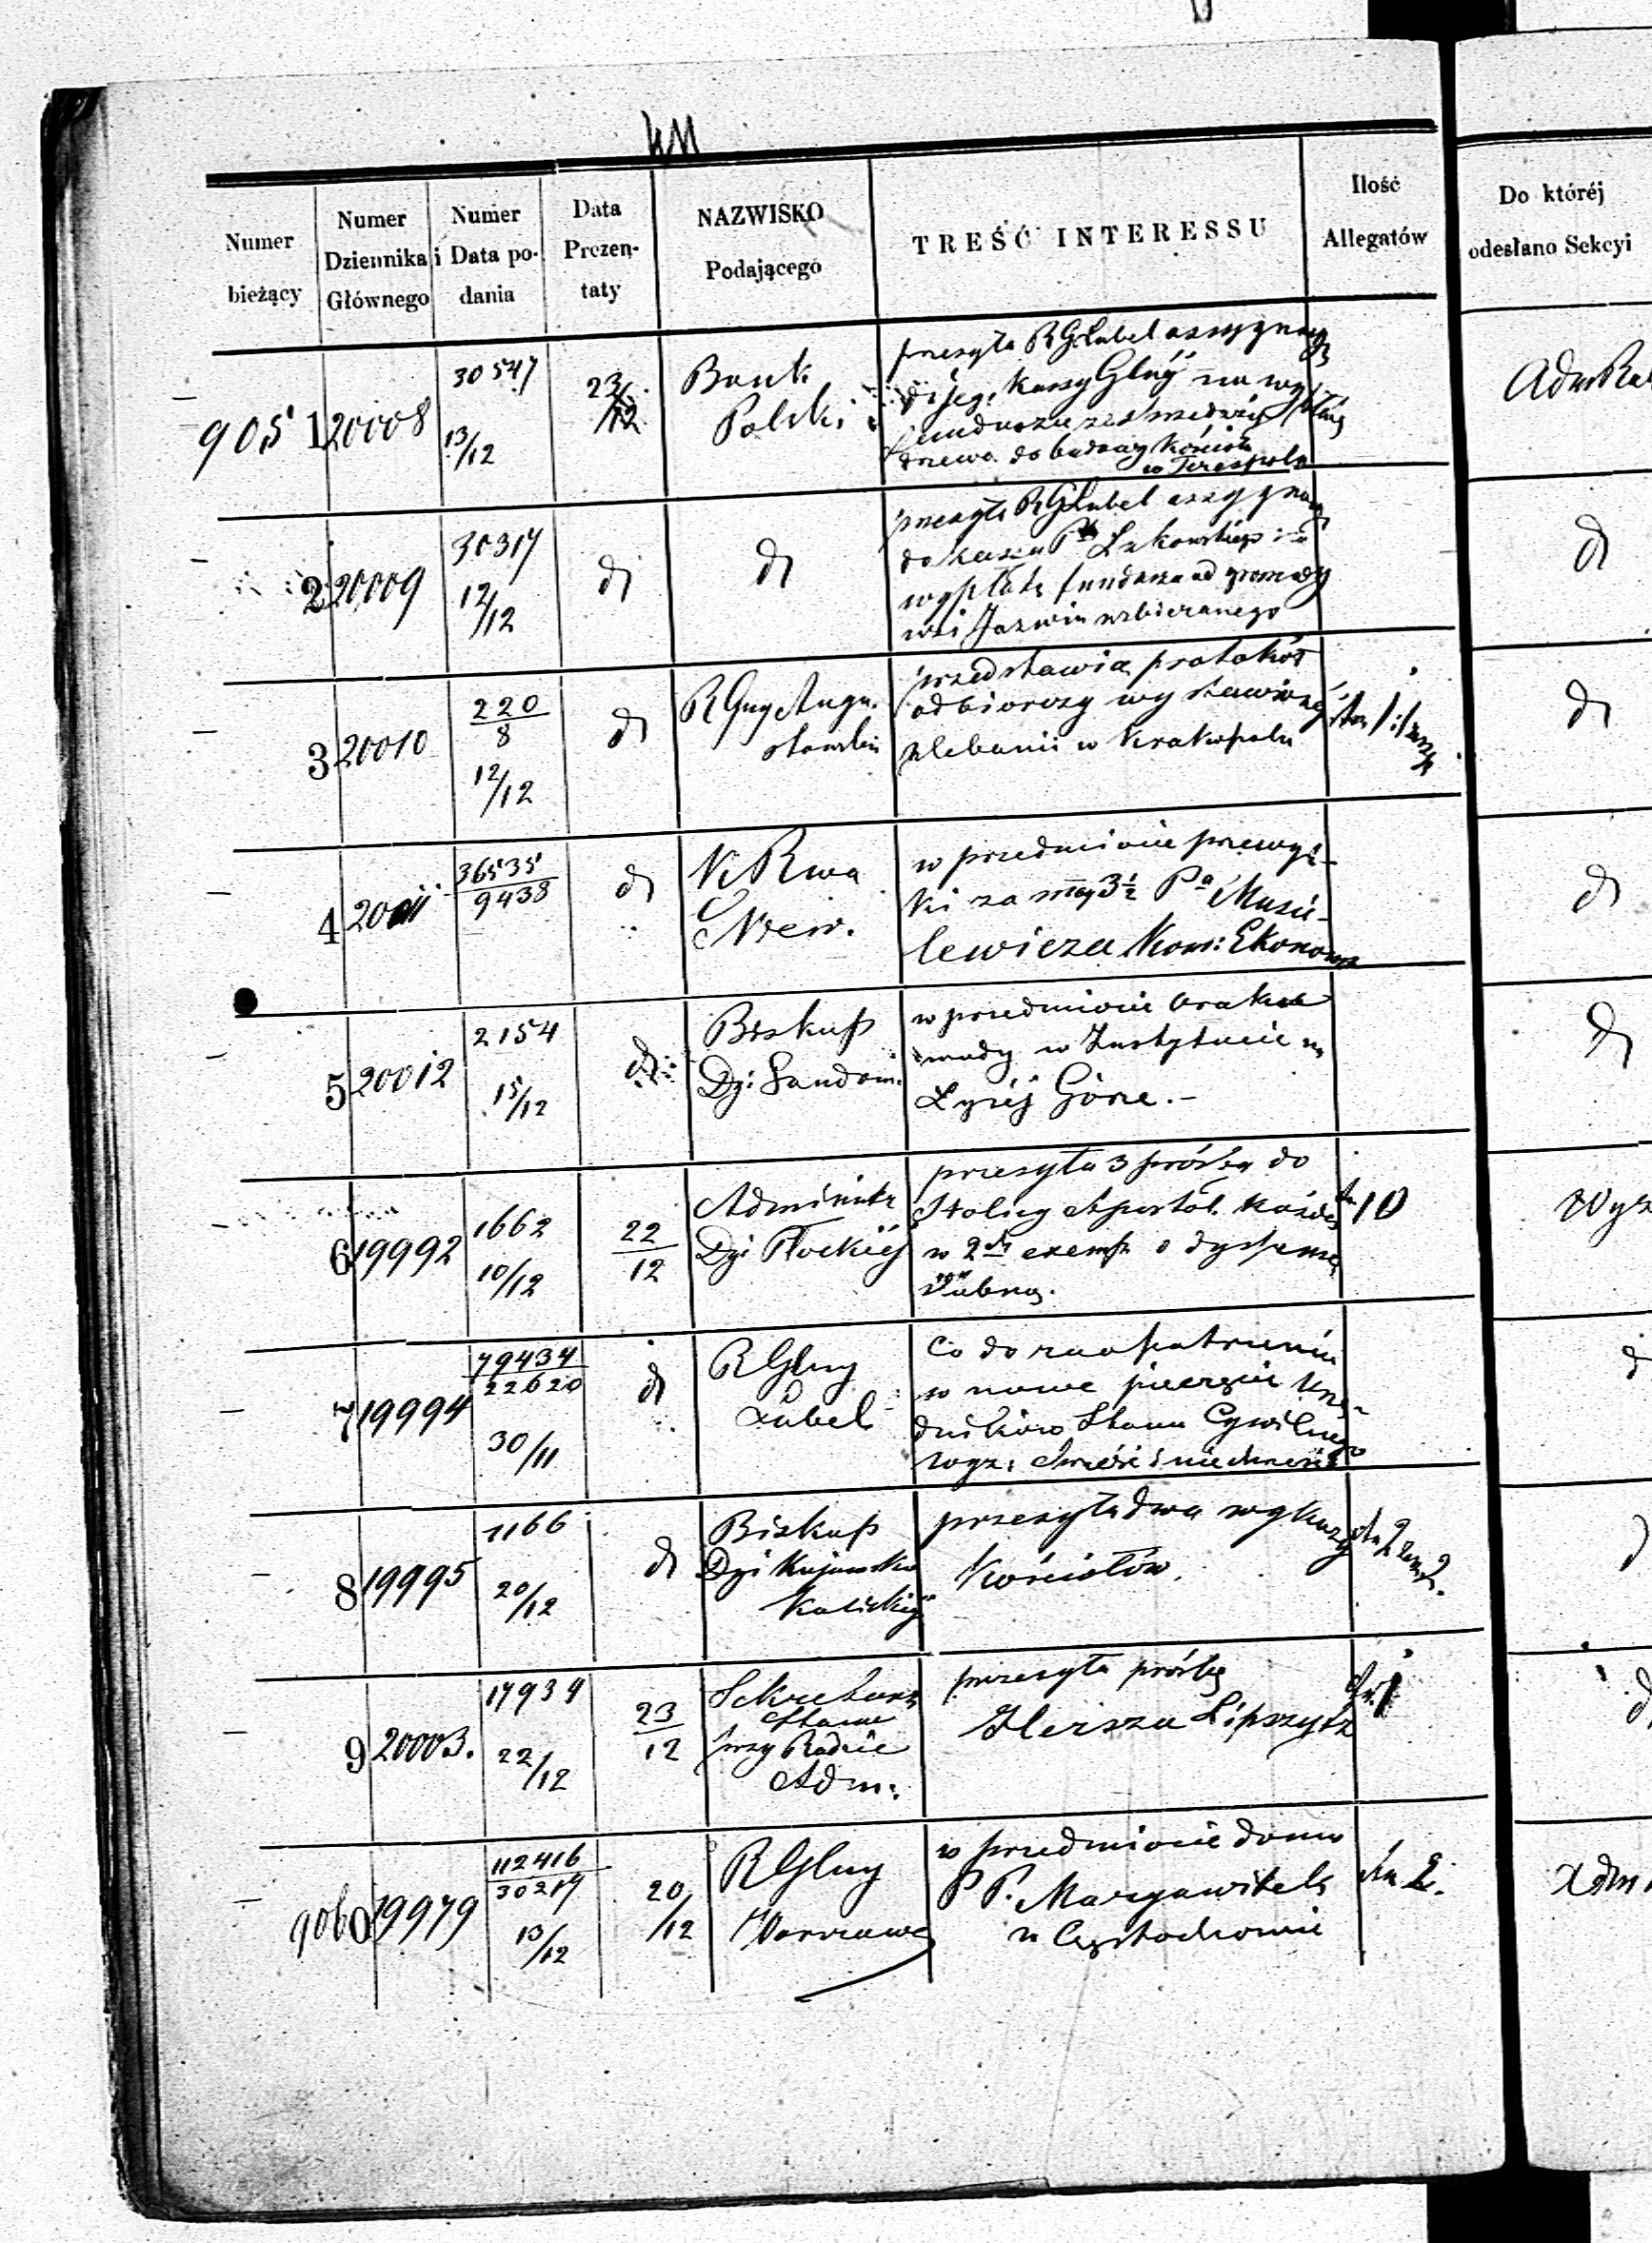 Numer bieżący
Numer Dziennika Głównego
Numer i Data podania
Data Prezentaty
NAZWISKO Podającego
TREŚĆ INTERESSU
Ilość Allegatów
Do któréj odesłano Sekcyi
9051
20008
30547
13/12
23/12
Bank
Polski
przesyła RGLubel assygnacyą
do jeg. Kassy Głnéj na wypłatę
funduszu ze
drzewa do budowy Kościoła
w Terespolu
2
20009
30317
12/12
d
d
przesyła RGLubel assygnacyą
do
wypłatę funduszu od gromady
wsi Jazwin uzbieranego
d
3
20010
220
8
12/12
d
RGny Augu-
stowski
przedstawia protokół
odbiorczy wystawionéj
plebanii w Krakopolu
d
4
20011
36535
9438
d
KRwa
w przedmiocie przewyż-
ki za 3½ Pa Musie-
lewicza Kom: Ekonom
d
5
20012
2154
15/12
d
Biskup
Dyi Sandom:
w przedmiocie braku
wody w Instytucie na
Łyséj Górze.-
d
6
19992
1662
10/12
22
12
Administr
Dyi Płockiéj
przesyła 3 prośby do
Stolicy Apostol. każda
w 2ch exemp. o dyspensę
ślubną.
10
7
19994
79434
22620
30/11
d
RGlny
Lubel
Co do zaopatrzenia
w nowe pieczęcie Urzę-
dników Stanu Cywilnego
wyz:
8
19995
1166
20/12
d
Biskup
Dyi Kujawsko
Kaliskiéj
przesyła dwa wykazy
Kościołów.
9
20003.
17934
22/12
23
12
Sekretarz
Stanu
przy Radzie
Adm:
przesyła prośbę
Hersza Lipszytz
1
9060
19979
112416
30217
13/12
20/12
RGlny
Warszaws
w przedmiocie domu
PP. Maryawitek
w Częstochowie
2.